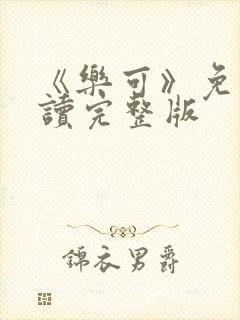 《樂可》免
讀完整版
錦衣男爵